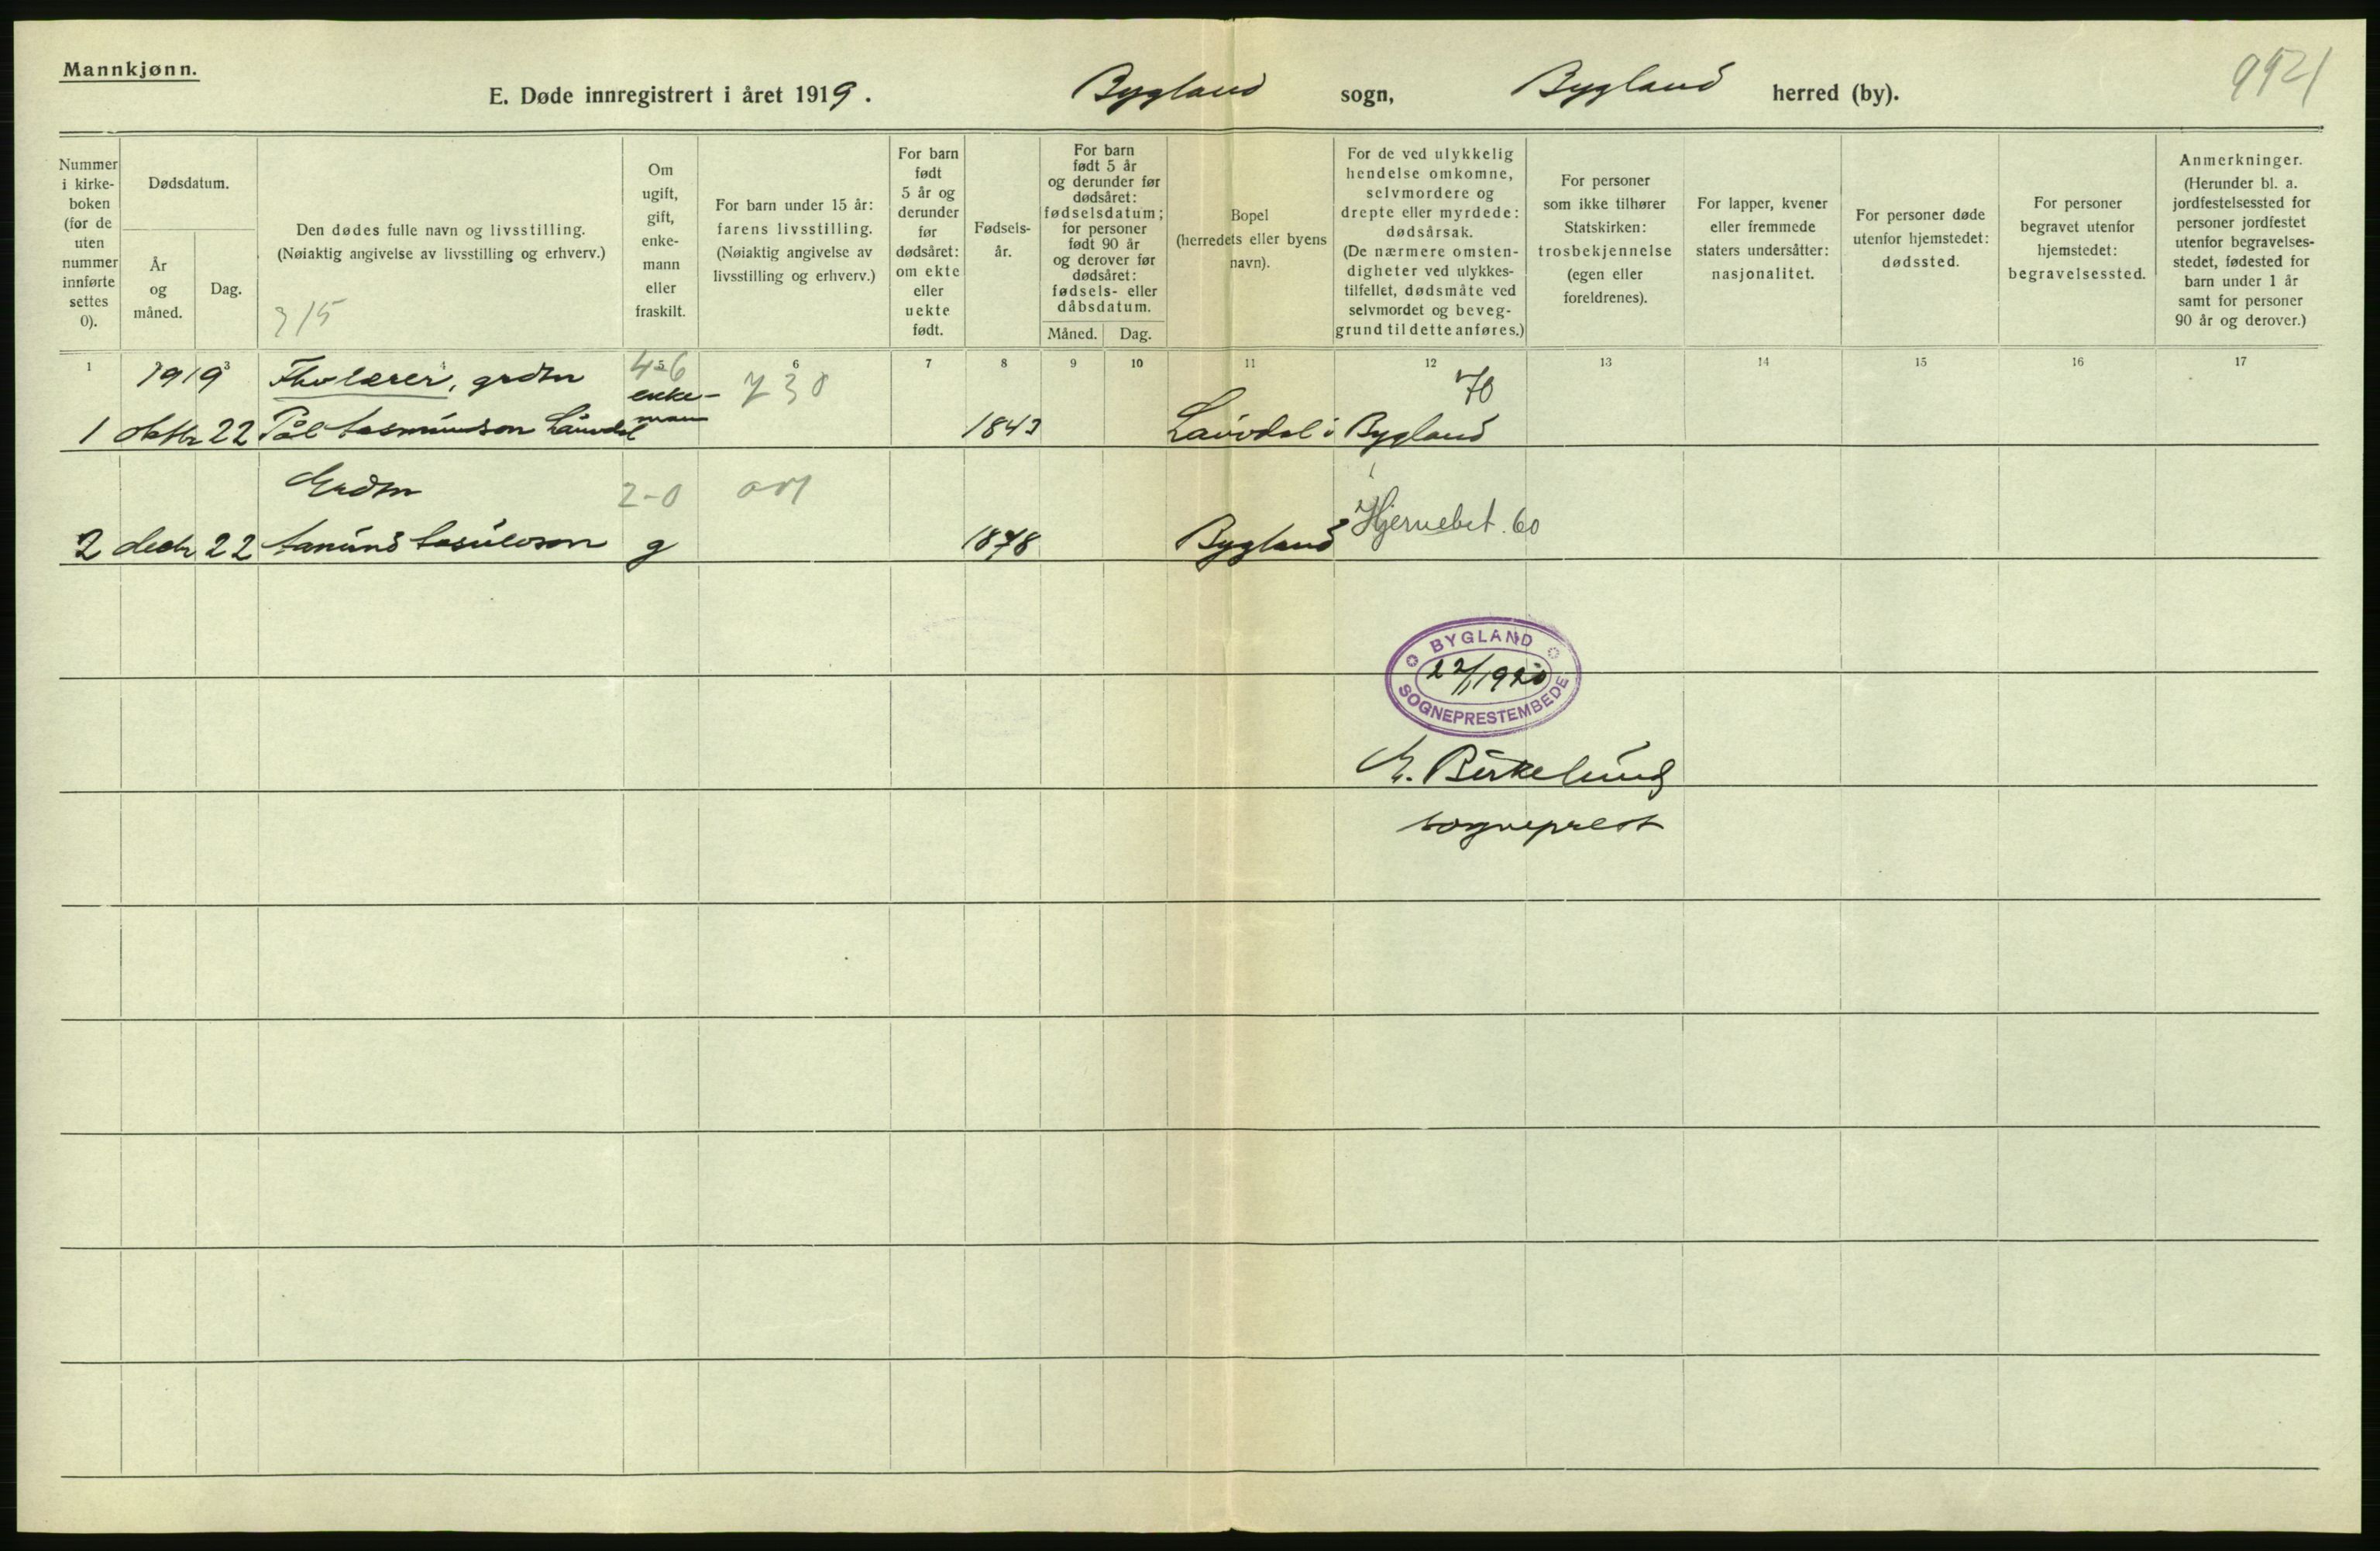 Mannkjønn.
E. Døde innregistrert i året 1919. Bygland sogn, Bygland herred (by).
9921
Nummer
i kirke-
boken
(for de
uten
nummer
innførte
settes
0).
Dødsdatum.
År
og
måned.
Dag.
Den dødes fulle navn og livsstilling.
(Nøiaktig angivelse av livsstilling og erhverv.)
Om
ugift,
gift,
enke-
mann
eller
fraskilt.
For barn under 15 år:
farens livsstilling.
(Nøiaktig angivelse av
livsstilling og erhverv.)
For barn
født
5 år og
derunder
før
dødsåret:
om ekte
eller
uekte
født.
Fødsels-
år.
For barn
født 5 år
og derunder før
dødsåret:
fødselsdatum;
for personer
født 90 år
og derover før
dødsåret:
fødsels- eller
dåbsdatum.
Måned. Dag.
Bopel
(herredets eller byens
navn).
For de ved ulykkelig
hendelse omkomne,
selvmordere og
drepte eller myrdede:
dødsårsak.
(De nærmere omsten-
digheter ved ulykkes-
tilfellet, dødsmåte ved
selvmordet og beveg-
grund til dette anføres.)
For personer
som ikke tilhører
Statskirken:
trosbekjennelse
(egen eller
foreldrenes).
For lapper, kvener
eller fremmede
staters undersåtter:
nasjonalitet.
For personer døde
utenfor hjemstedet:
dødssted.
For personer
begravet utenfor
hjemstedet:
begravelsessted.
Anmerkninger.
(Herunder bl. a.
jordfestelsessted for
personer jordfestet
utenfor begravelses-
stedet, fødested for
barn under 1 år
samt for personer
90 år og derover.)
1 3 5 6 7 8 9 10 11 12 13 14 15 16 17
1919 lærer, grdm 4-6 730 70
enke-
mann
1 oktbr 22 Pål 1843 Lauvdal i Bygland
Grdm 2-0
2 decbr 22 g 1878 Bygland Hjernebet. 60
BYGLAND
22/1 1920
SOGNEPRESTEMBEDE
Birkelund
sogneprest